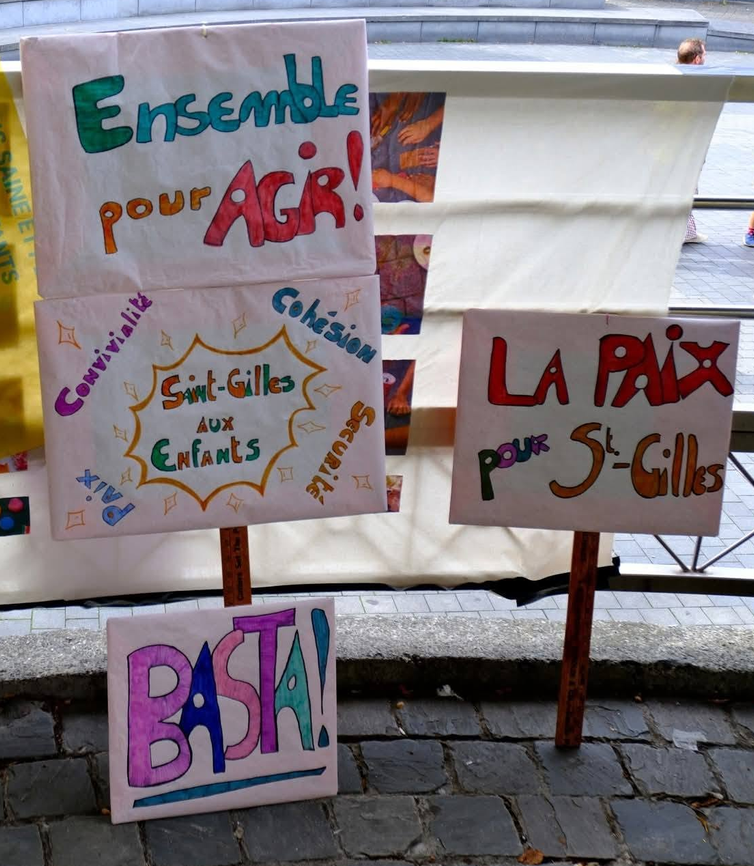 Ensemble
pour AGIR!
Convivialité
Cohésion
Saint-Gilles
AUX
Enfants
Sécurité
Paix
BASTA!
LA PAIX
pour St.-Gilles